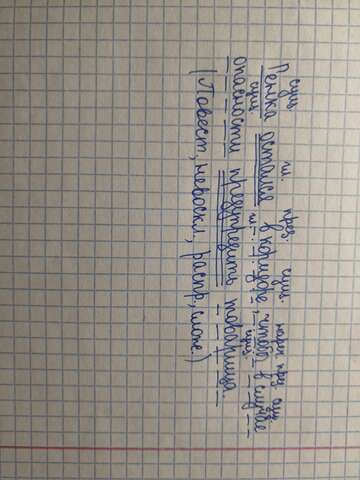 сущ. гл. през. сущ. нареч през. сущ.
Генка остался в коридоре, чтобы в случае
сущ. гл. сущ.
опасности предупредить товарища.
(Повест, невоскл, распр, слож.)